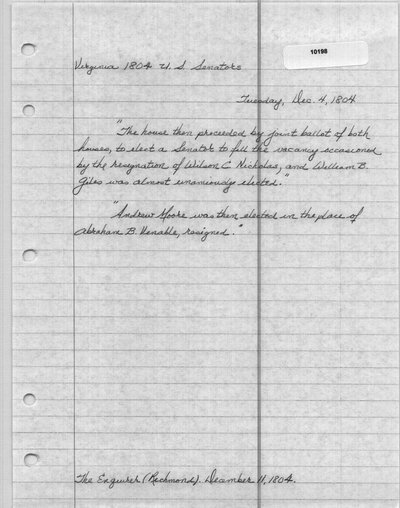 10198
Virginia 1804 U. S. Senators
Tuesday, Dec. 4, 1804
"The house then proceeded by joint ballot of both
houses, to elect a Senator to fill the vacancy occasioned
by the resignation of Wilson C. Nicholas, and William B.
Giles was almost unaniously elected."
"Andrew Moore was then elected in the place of
Abraham B. Venable, resigned."
The Enquirer (Richmond). December 11, 1804.